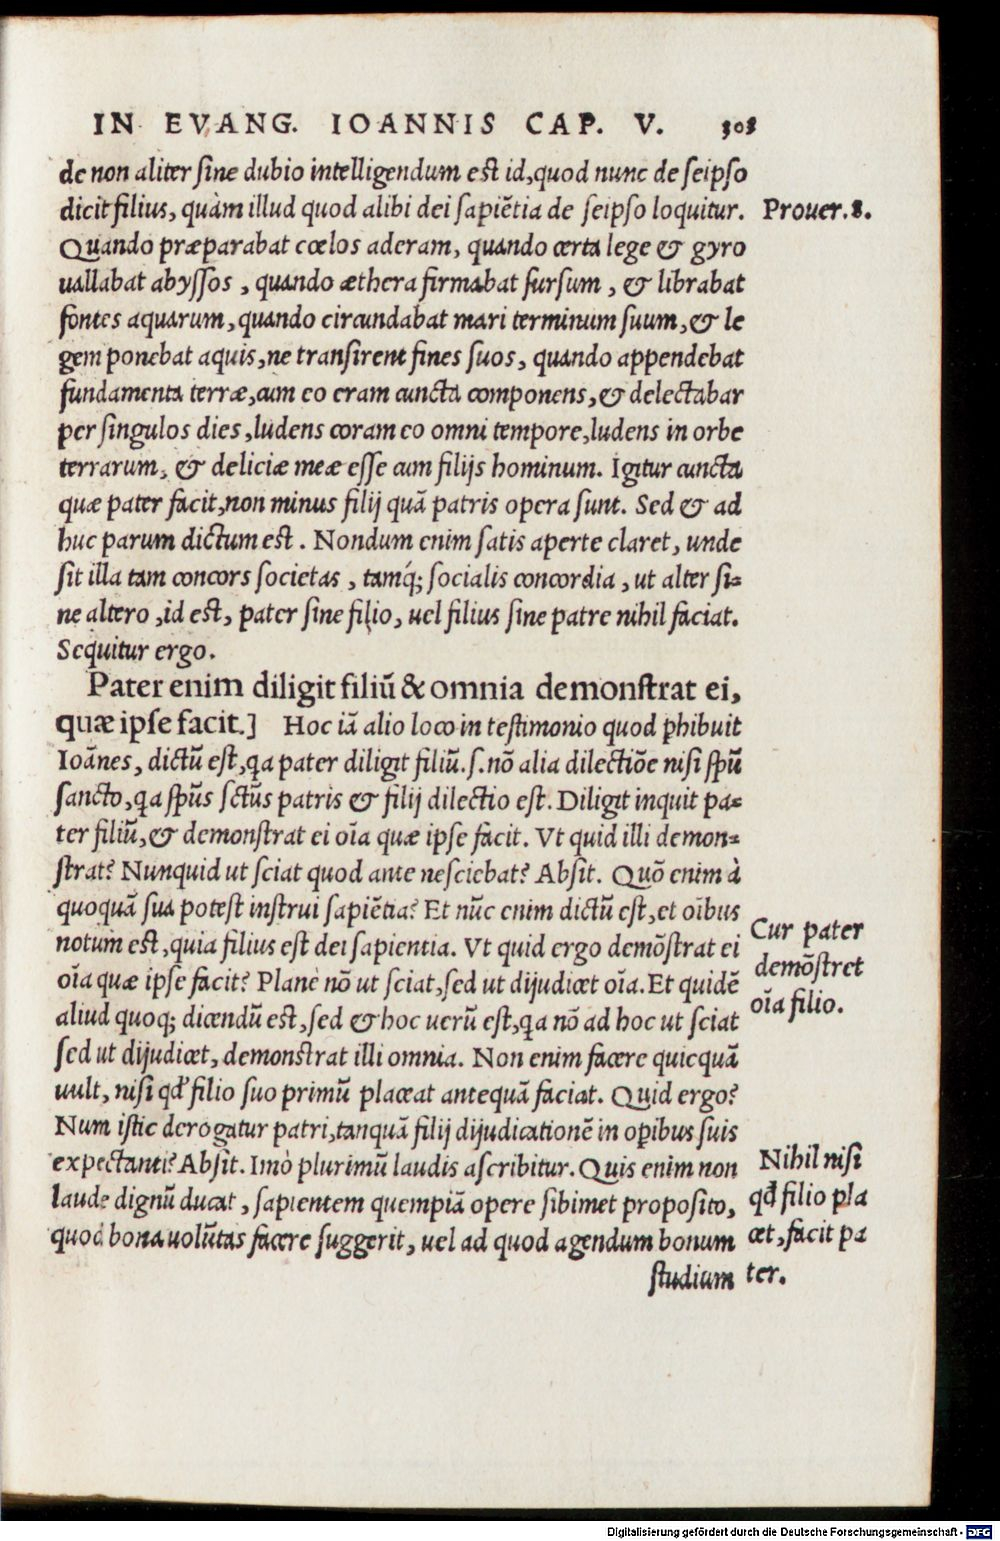 IN EVANG. IOANNIS CAP. V. 308
de non aliter sine dubio intelligendum est id, quod nunc de seipso
dicit filius, quàm illud quod alibi dei sapiẽtia de seipso loquitur.
Prouer. 8.
Quando præparabat cœlos aderam, quando certa lege & gyro
uallabat abyssos, quando æthera firmabat sursum, & librabat
fontes aquarum, quando circundabat mari terminum suum, & le
gem ponebat aquis, ne transirent fines suos, quando appendebat
fundamenta terræ, cum eo eram cuncta componens, & delectabar
per singulos dies, ludens coram eo omni tempore, ludens in orbe
terrarum, & deliciæ meæ esse cum filijs hominum. Igitur cuncta
quæ pater facit, non minus filij quã patris opera sunt. Sed & ad
huc parum dictum est. Nondum enim satis aperte claret, unde
sit illa tam concors societas, tamq́; socialis concordia, ut alter si=
ne altero, id est, pater sine filio, uel filius sine patre nihil faciat.
Sequitur ergo.
Pater enim diligit filiũ & omnia demonstrat ei,
quæ ipse facit.] Hoc iã alio loco in testimonio quod ꝑhibuit
Ioãnes, dictũ est, ꝗa pater diligit filiũ. s. nõ alia dilectiõe nisi spũ
sancto, ꝗa spũs sctũs patris & filij dilectio est. Diligit inquit pa=
ter filiũ, & demonstrat ei oĩa quæ ipse facit. Vt quid illi demon=
strat? Nunquid ut sciat quod ante nesciebat? Absit. Quõ enim à
quoquã sua potest instrui sapiẽtia? Et nũc enim dictũ est, et oĩbus
notum est, quia filius est dei sapientia. Vt quid ergo demõstrat ei
oĩa quæ ipse facit? Planè nõ ut sciat, sed ut dijudicet oĩa. Et quidẽ
aliud quoq; dicendũ est, sed & hoc uerũ est, ꝗa nõ ad hoc ut sciat
Cur pater
demõstret
oĩa filio.
sed ut dijudicet, demonstrat illi omnia. Non enim facere quicquã
uult, nisi qđ filio suo primũ placeat antequã faciat. Quid ergo?
Num istic derogatur patri, tanquã filij dijudicationẽ in oꝑibus suis
expectanti? Absit. Imò plurimũ laudis ascribitur. Quis enim non
laude dignũ ducat, sapientem quempiã opere sibimet proposito,
quod bona uolũtas facere suggerit, uel ad quod agendum bonum
Nihil nisi
qđ filio pla
cet, facit pa
ter.
studium
Digitalisierung gefördert durch die Deutsche Forschungsgemeinschaft - DFG